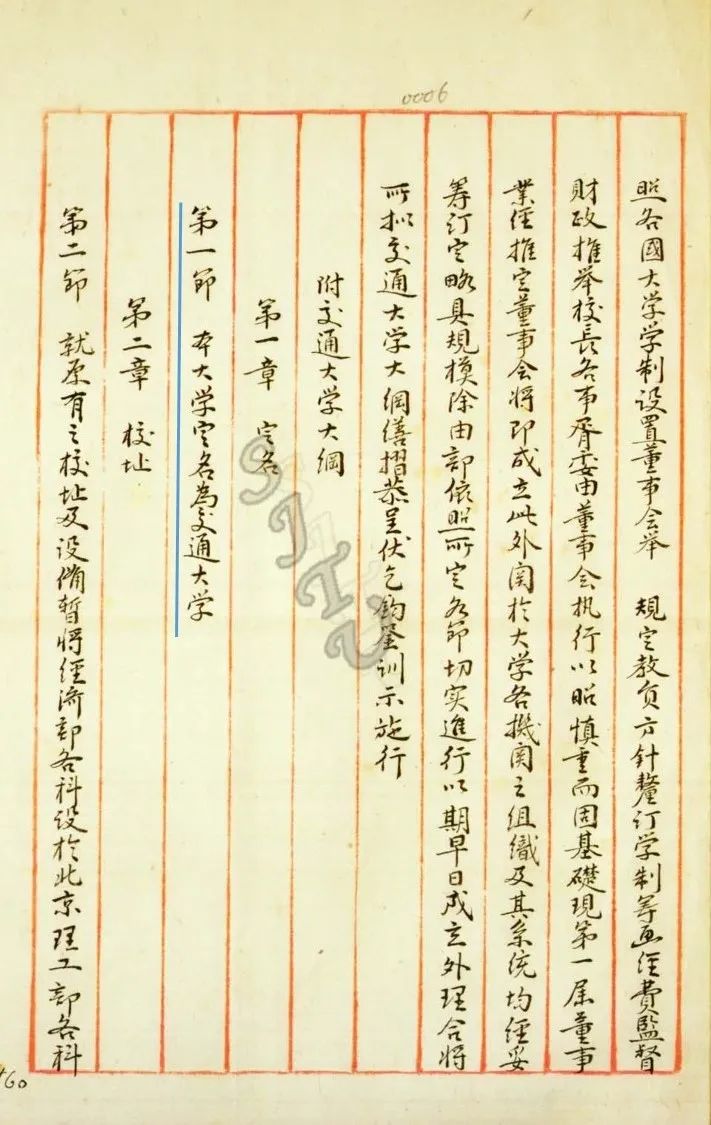 0006
照各國大学学制设置董事会举 規定教育方针釐订学制筹画经费監督
财政推举校長各事胥委由董事会执行以昭慎重而固基礎現第一届董事
業经推定董事会将即成立此外関扵大学各機関之组織及其系统均经妥
筹订定略具規模除由部依照所定各節切实進行以期早日成立外理合将
所拟交通大学大綱缮摺恭呈伏乞鈞鉴训示施行
附交通大学大綱
第一章 定名
第一節 本大学定名為交通大学
第二章 校址
第二節 就原有之校址及设俻暂将经济部各科设扵北京理工部各科
SJTU
160